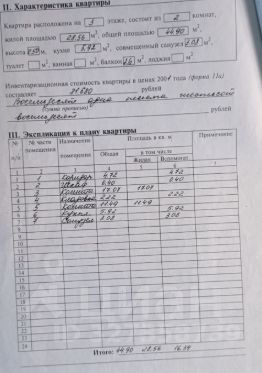 II. Характеристика квартиры
Квартира расположена на 3 этаже, состоит из 2 комнат,
жилой площадью 28.56 м², общей площадью 44.90 м²,
высота м, кухня 5.92 м², совмещенный санузел 2.08 м²,
туалет м², ванная м², балкон м², лоджия м²
Инвентаризационная стоимость квартиры в ценах 200 года (форма 11а)
составляет рублей
(сумма прописью)
восемьдесят рублей
III. Экспликация к плану квартиры
№ п/п № части помещения Назначение помещения Площадь в кв. м Примечание
Общая в том числе
Жилая Вспомогат.
1 2 3 4 5 6 7
1 1 Коридор 4.72 4.72
2 Шкаф 0.40 0.40
3 Комната 17.07 17.07
4 Кладовая 2.22 2.22
5 Комната 11.49 11.49
6 Кухня 5.92 5.92
7 Санузел 2.08 2.08
Итого: 44.90 28.56 16.34